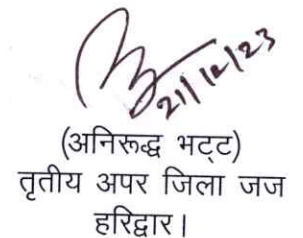 21/12/23
(अनिरूद्ध भट्ट)
तृतीय अपर जिला जज
हरिद्वार।